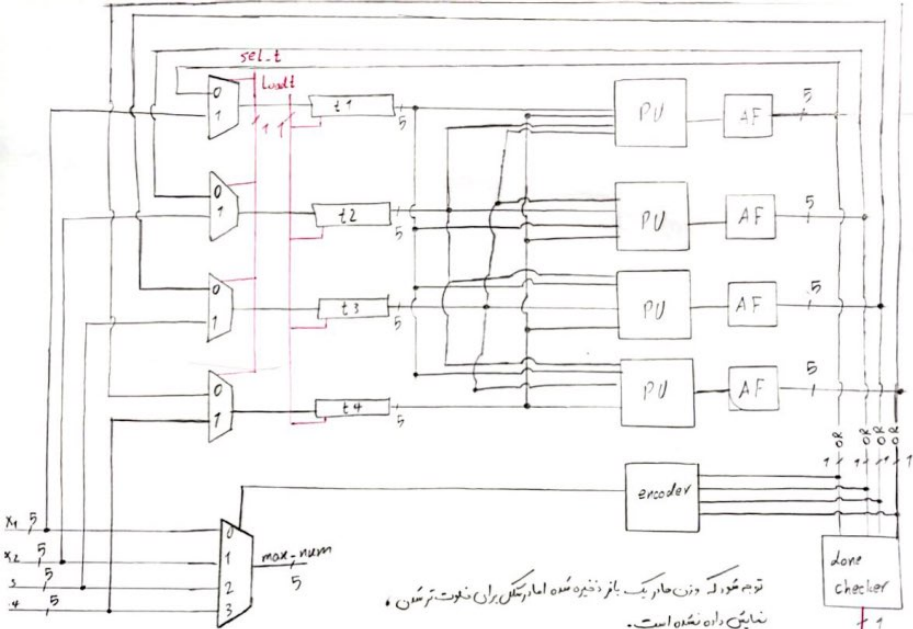 sel_t
Loadt
0
1
1
1
t1
5
PU
AF
5
0
1
t2
5
PU
AF
5
0
1
t3
5
PU
AF
5
0
1
t4
5
PU
AF
5
OR
OR
OR
OR
1
1
1
1
encoder
x1 5
x2 5
3 5
4 5
0
1
2
3
max_num
5
done
checker
1
توجه شود که وزن ها در یک بافر ذخیره شده اما در شکل برای خلوت تر شدن،
نمایش داده نشده است.